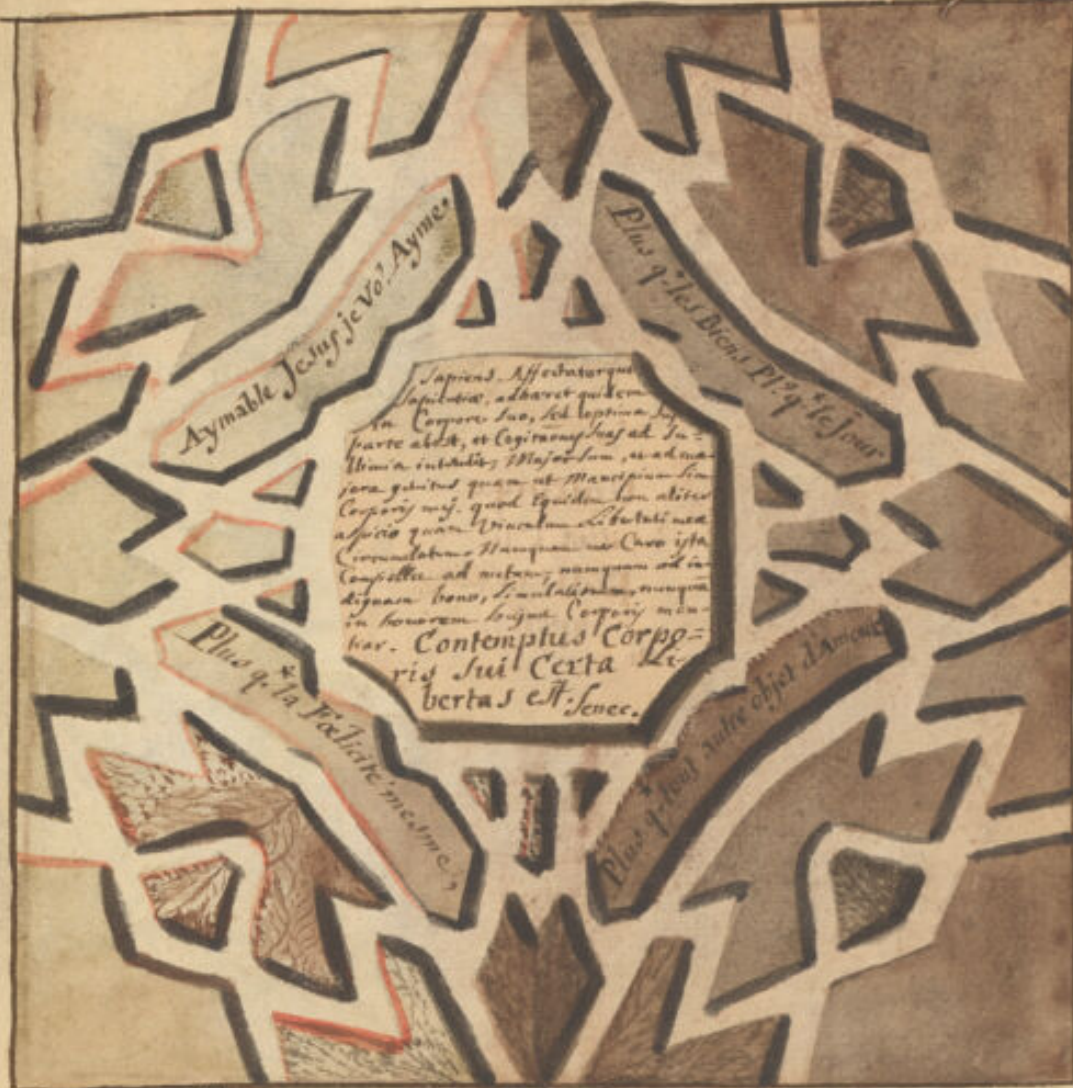 Aymable Jesus je Vo9. Ayme.
Plus q. les Biens Pl9. q. le Jour
Sapiens Affectatorque
Sapientiæ, adhæret quidem
in Corpore suo, sed optima sui
parte abest, et Cogitationes suas ad Su-
blimia intendit; Major sum, et ad ma
jora genitus quam ut Mancipium sim
Corporis mei. quod Equidem non aliter
aspicio quam Vinculum Libertati meæ
Circumdatum Nunquam me Caro ista
Compellet ad metum, nunquam ad in
dignam bono, simulationem, nunquā
in honorem hujus Corporis men-
tiar. Contemptus Corpo=
ris sui Certa Li-
bertas est. Senec.
Plus q. la Fœlicité mesme,
Plus q. tout autre objet d'Amour